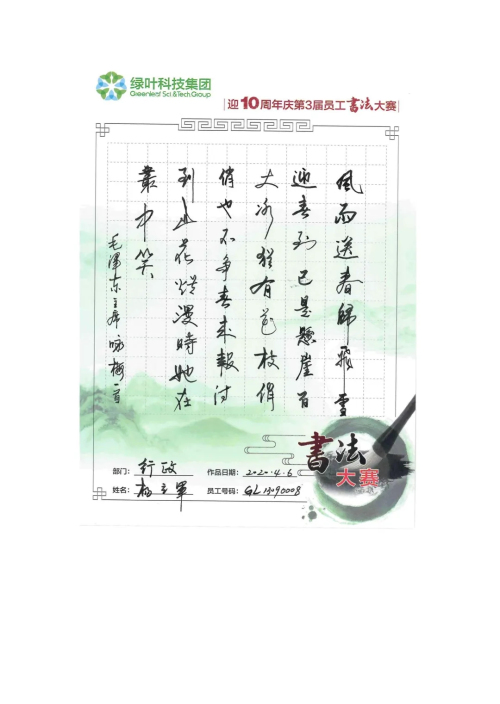 绿叶科技集团
Greenleaf Sci.&Tech.Group
迎10周年庆第3届员工书法大赛
風雨送春歸飛雪
迎春到已是懸崖百
丈冰猶有花枝俏
俏也不争春来報付
到山花爛漫時她在
叢中笑
毛澤东主席咏梅一首
书法
大赛
部门：行政
作品日期：2020.4.6
姓名：杨立军
员工号码：GL13090008